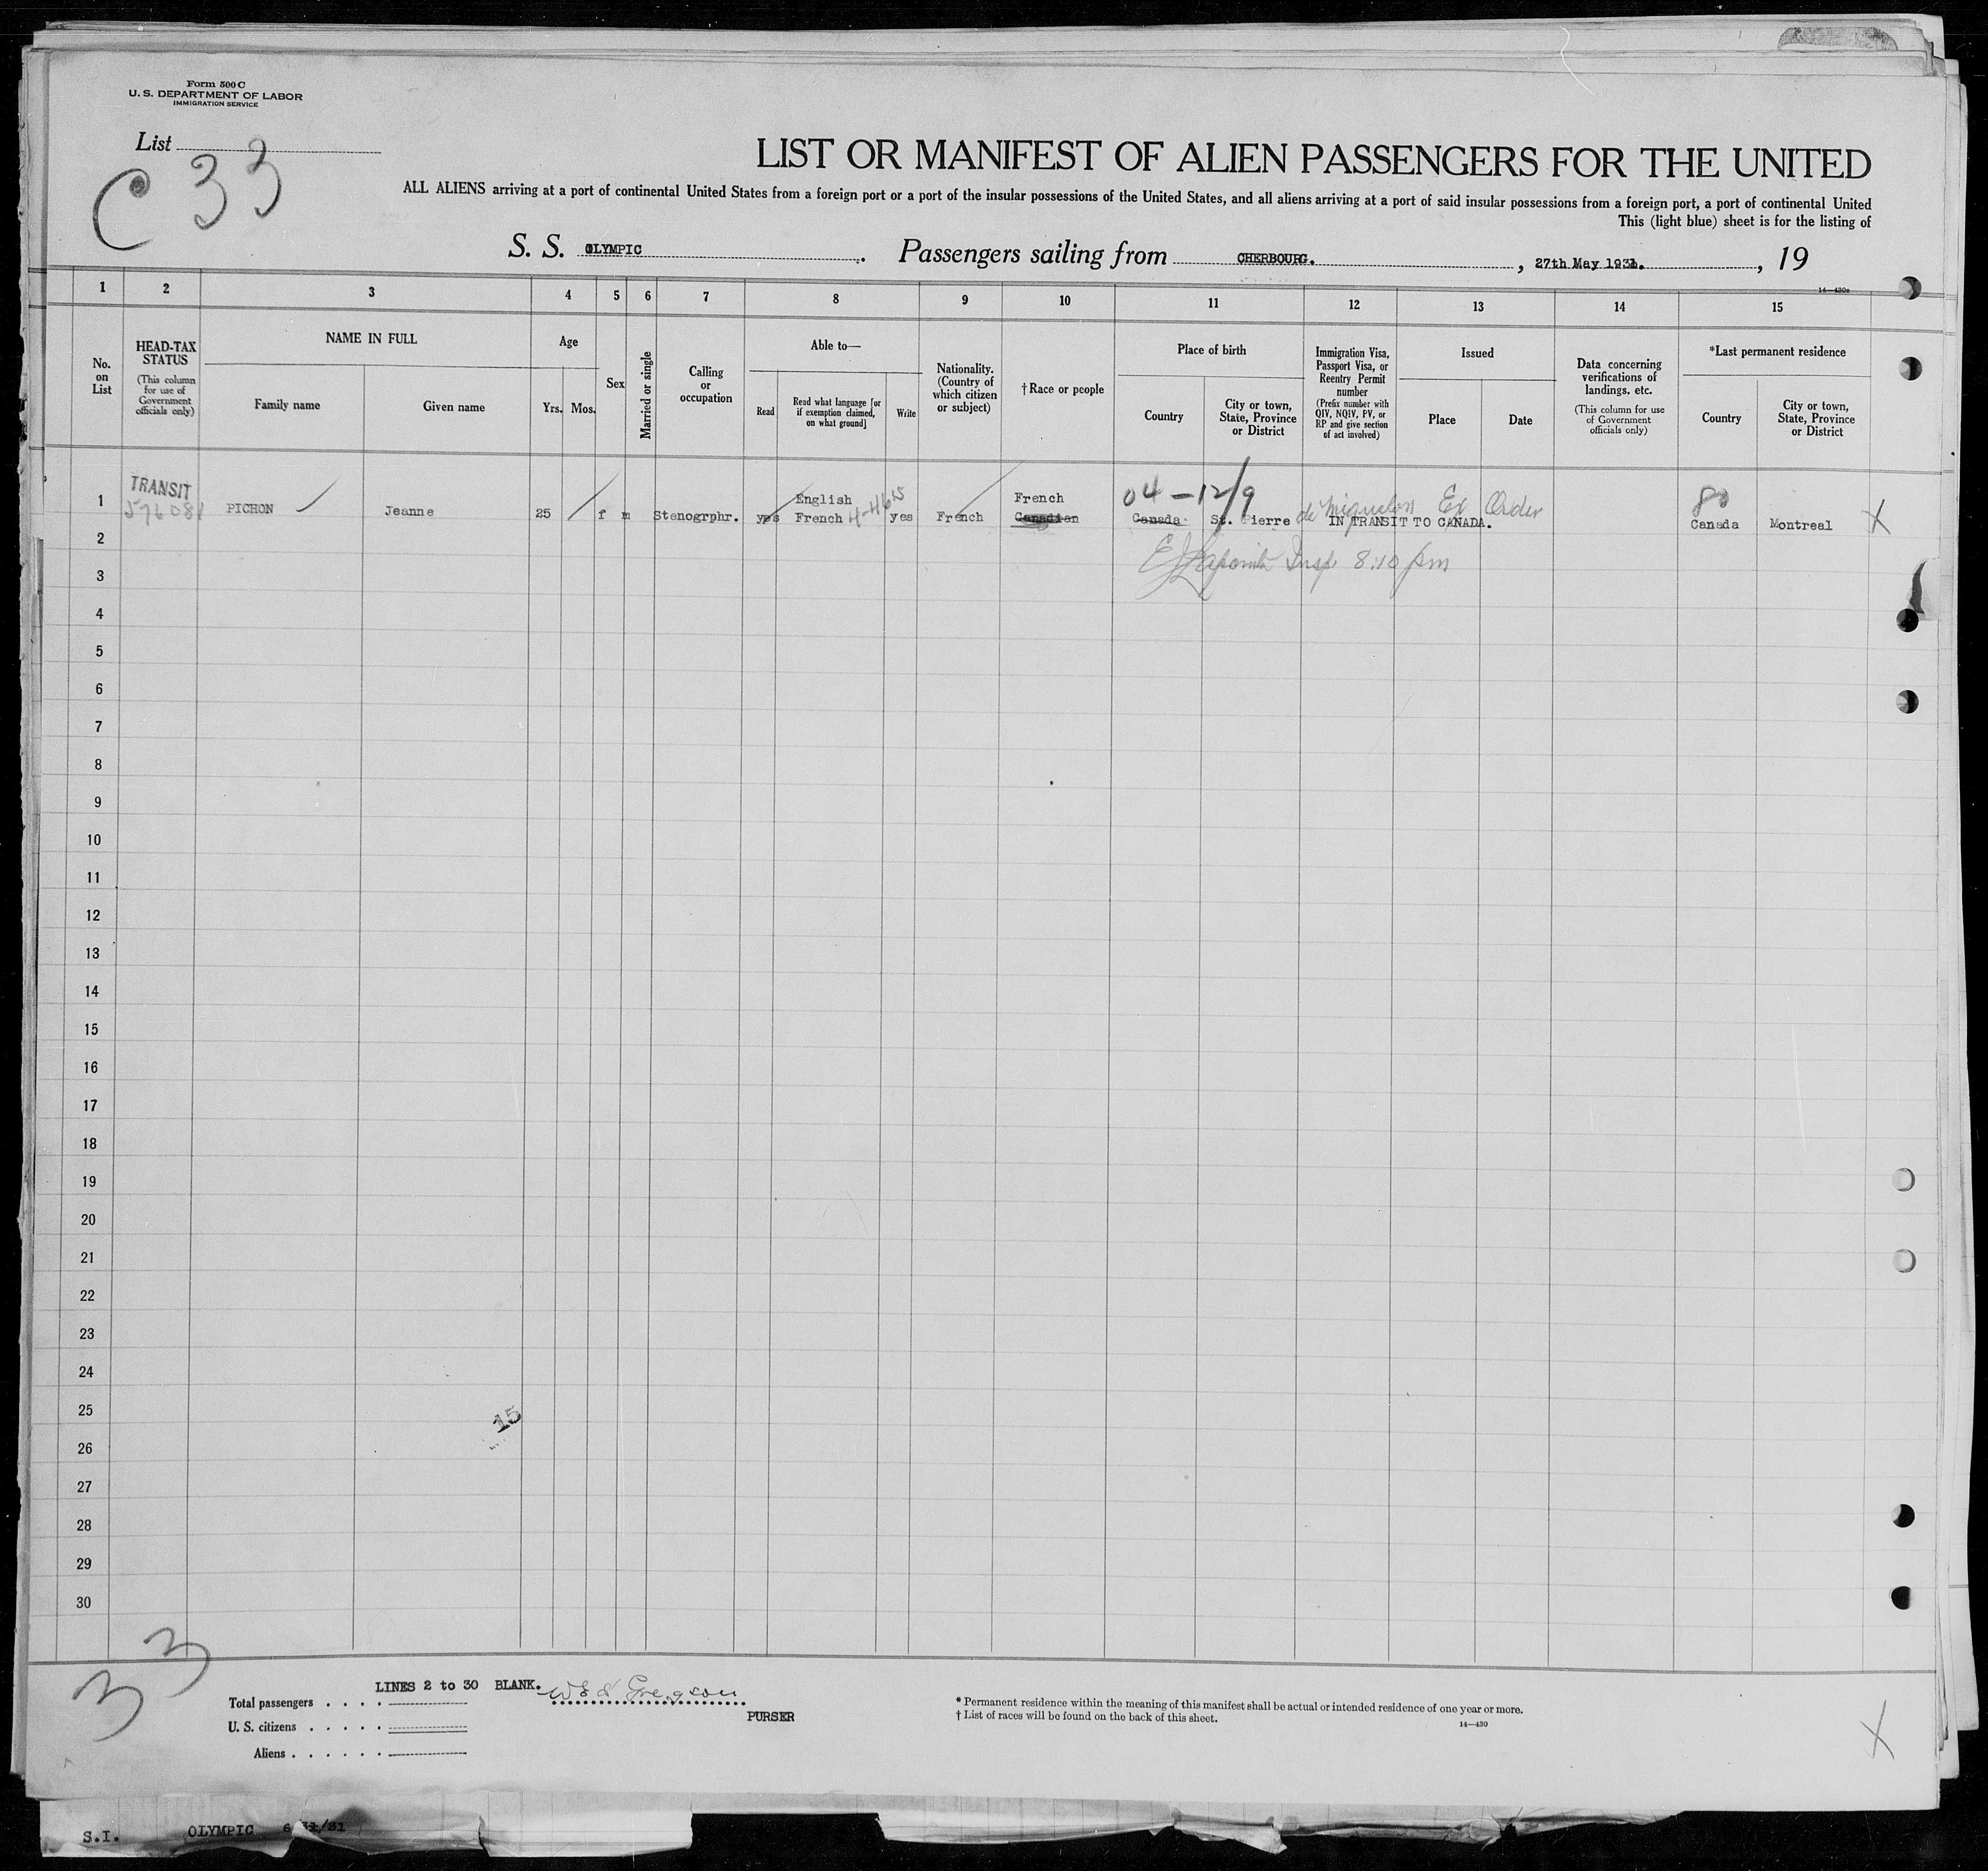 Form 500 C
U. S. DEPARTMENT OF LABOR
IMMIGRATION SERVICE
List
C 33
LIST OR MANIFEST OF ALIEN PASSENGERS FOR THE UNITED
ALL ALIENS arriving at a port of continental United States from a foreign port or a port of the insular possessions of the United States, and all aliens arriving at a port of said insular possessions from a foreign port, a port of continental United
This (light blue) sheet is for the listing of
S. S. OLYMPIC. Passengers sailing from CHERBOURG. , 27th May 1931. , 19
14—430a
1 2 3 4 5 6 7 8 9 10 11 12 13 14 15
No. on List
HEAD-TAX STATUS
(This column for use of Government officials only)
NAME IN FULL
Family name
Given name
Age
Yrs. Mos.
Sex
Married or single
Calling or occupation
Able to—
Read
Read what language [or if exemption claimed, on what ground]
Write
Nationality. (Country of which citizen or subject)
†Race or people
Place of birth
Country
City or town, State, Province or District
Immigration Visa, Passport Visa, or Reentry Permit number
(Prefix number with QIV, NQIV, PV, or RP and give section of act involved)
Issued
Place
Date
Data concerning verifications of landings, etc.
(This column for use of Government officials only)
*Last permanent residence
Country
City or town, State, Province or District
TRANSIT English French 04-12/9 80
1 PICHON Jeanne 25 f m Stenogrphr. yes French yes French Canadian Canada St. Pierre de Miquelon Ex Order IN TRANSIT TO CANADA. Canada Montreal X
2
Insp. 8:10 pm
3
4
5
6
7
8
9
10
11
12
13
14
15
16
17
18
19
20
21
22
23
24
25
15
26
27
28
29
30
33
LINES 2 to 30 BLANK.
Total passengers . . . .
PURSER
U. S. citizens . . . . .
Aliens . . . . . .
* Permanent residence within the meaning of this manifest shall be actual or intended residence of one year or more.
† List of races will be found on the back of this sheet.
14—430
X
S.I. OLYMPIC